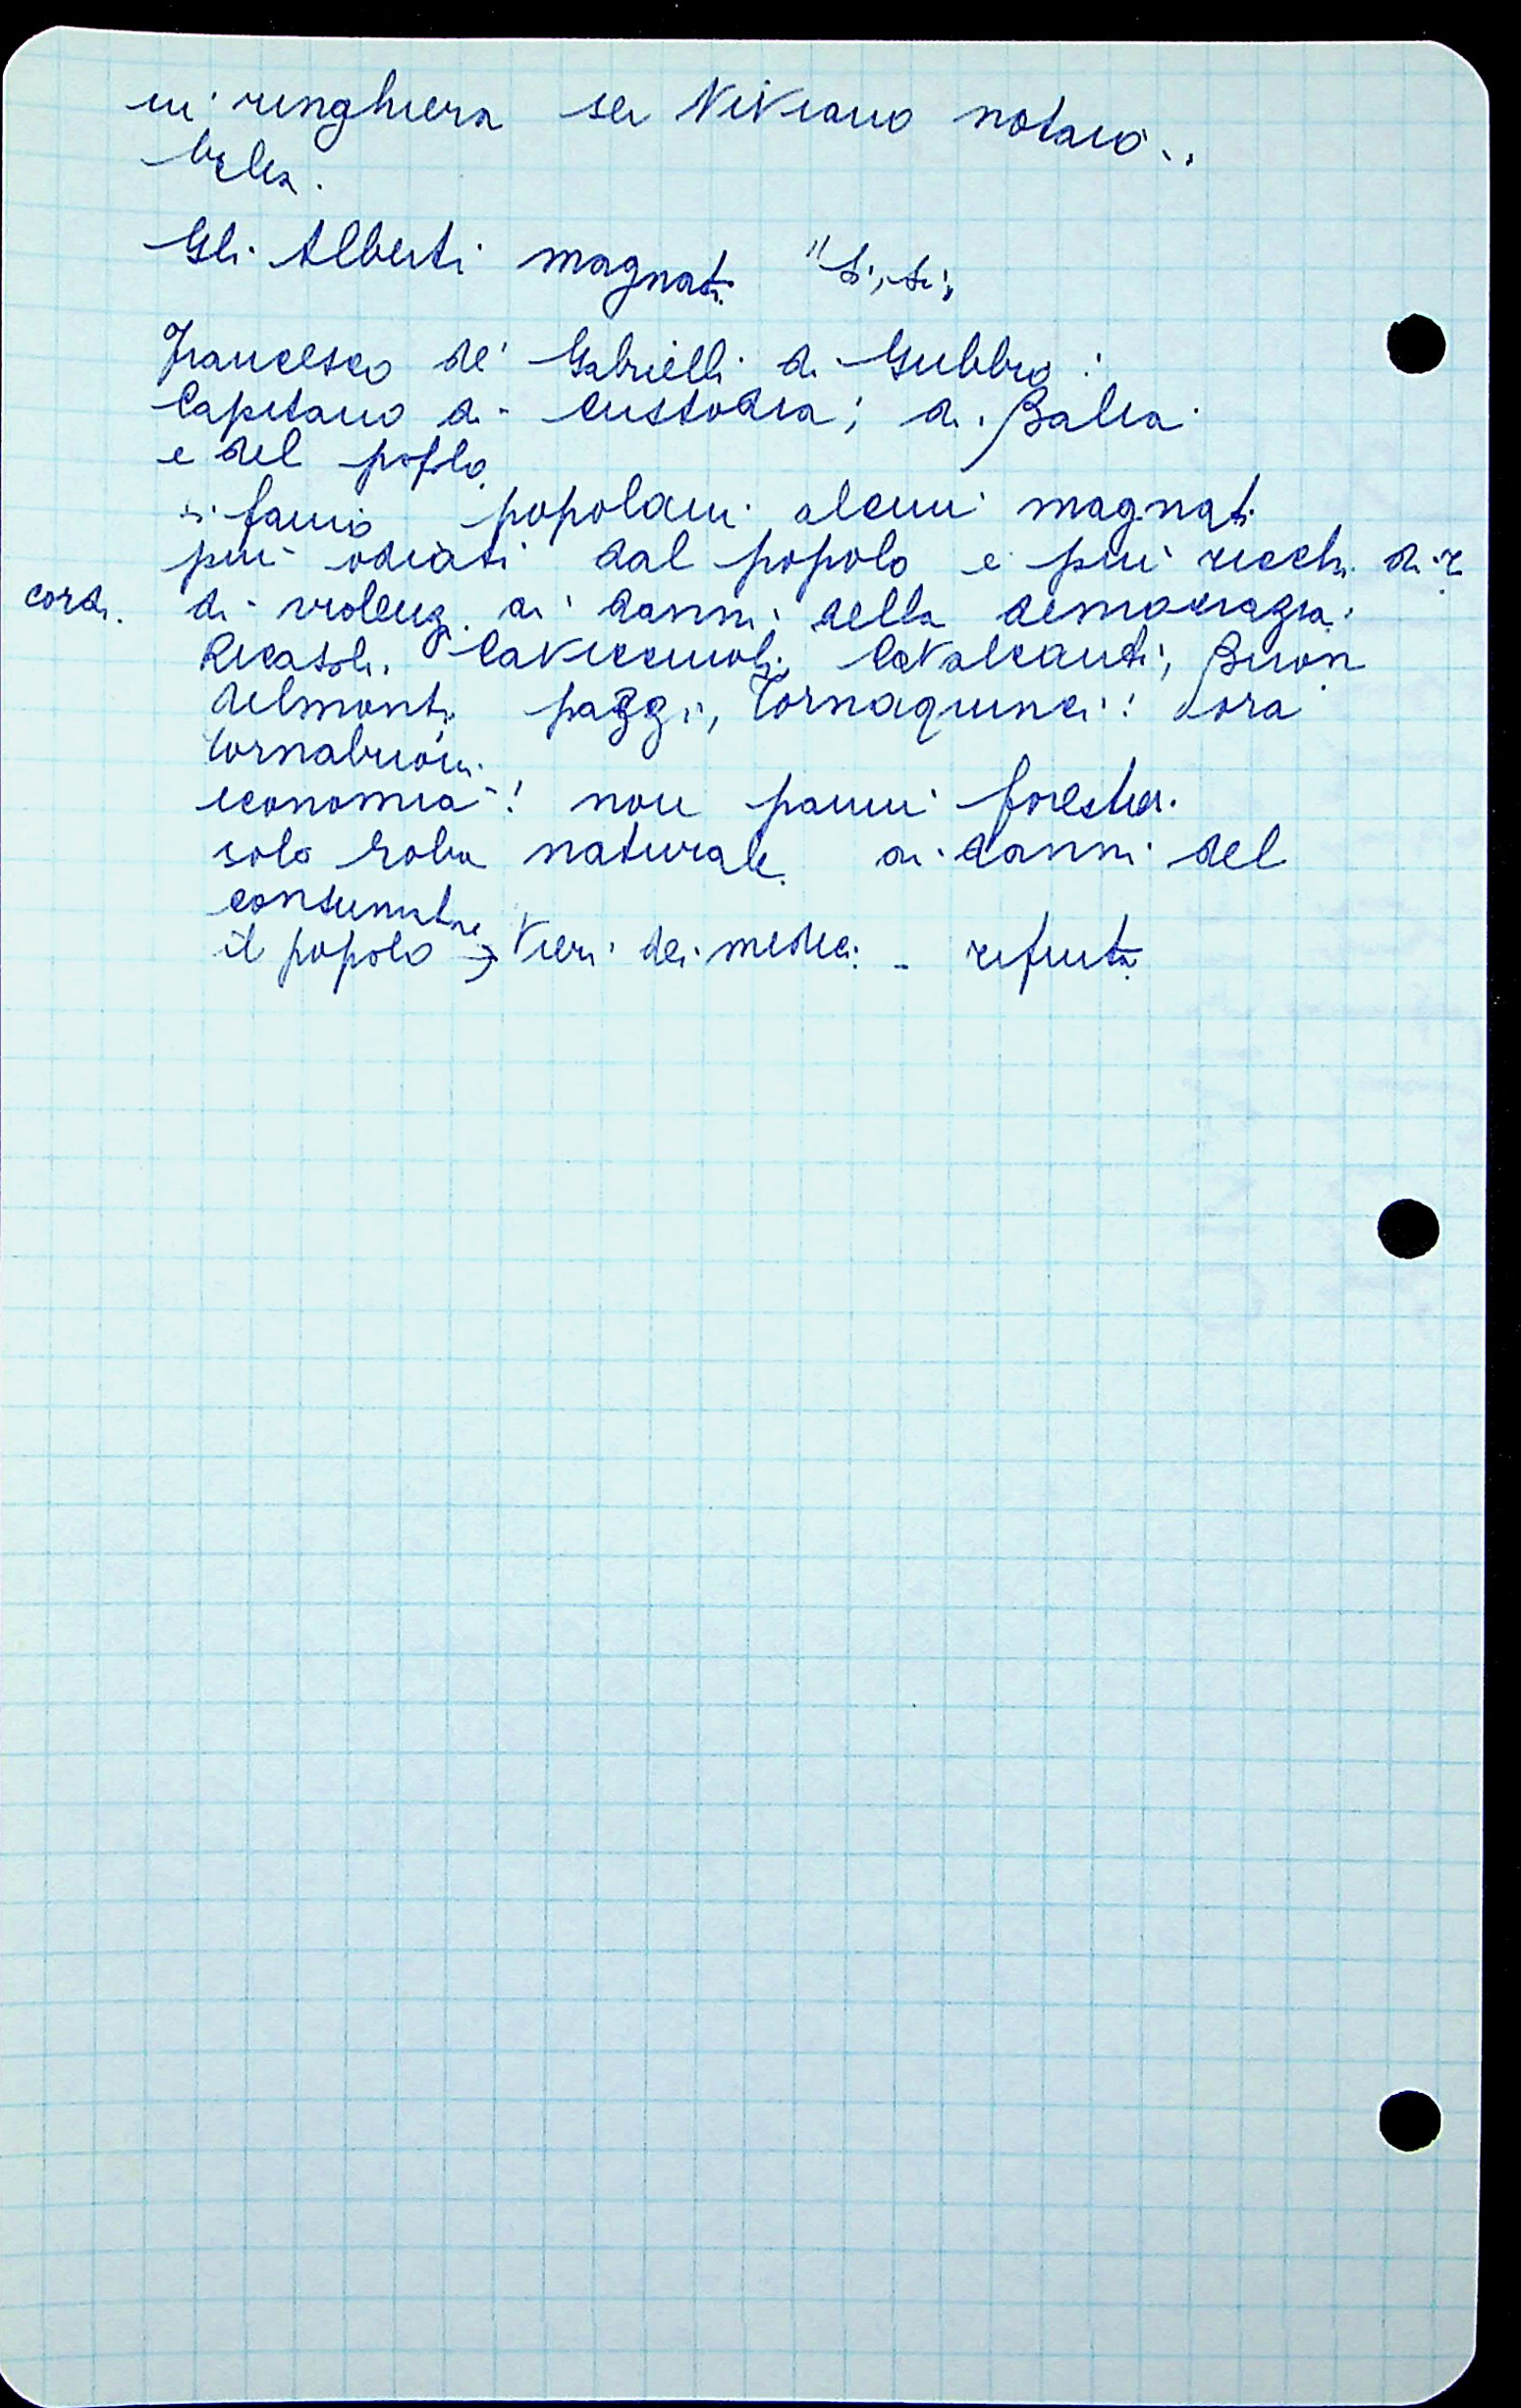 in ringhiera ser Viviano notaio..
balia.
Gli Alberti magnati "Si, si",
Francesco de' Gabrielli di Gubbio:
Capitano di custodia; di Balia
e del popolo.
si fanno popolani alcuni magnati
più odiati dal popolo e più ricchi di ri
cordi. di violenz. ai danni della democrazia:
Ricasoli, Cavicciuoli, Cavalcanti, Buon
delmonti pazzi, Tornaquinci: ora
tornabuoni.
economia! non panni forestieri.
solo roba naturale. ai danni del
consumatore
il popolo → Vieri dei medici - rifiuta